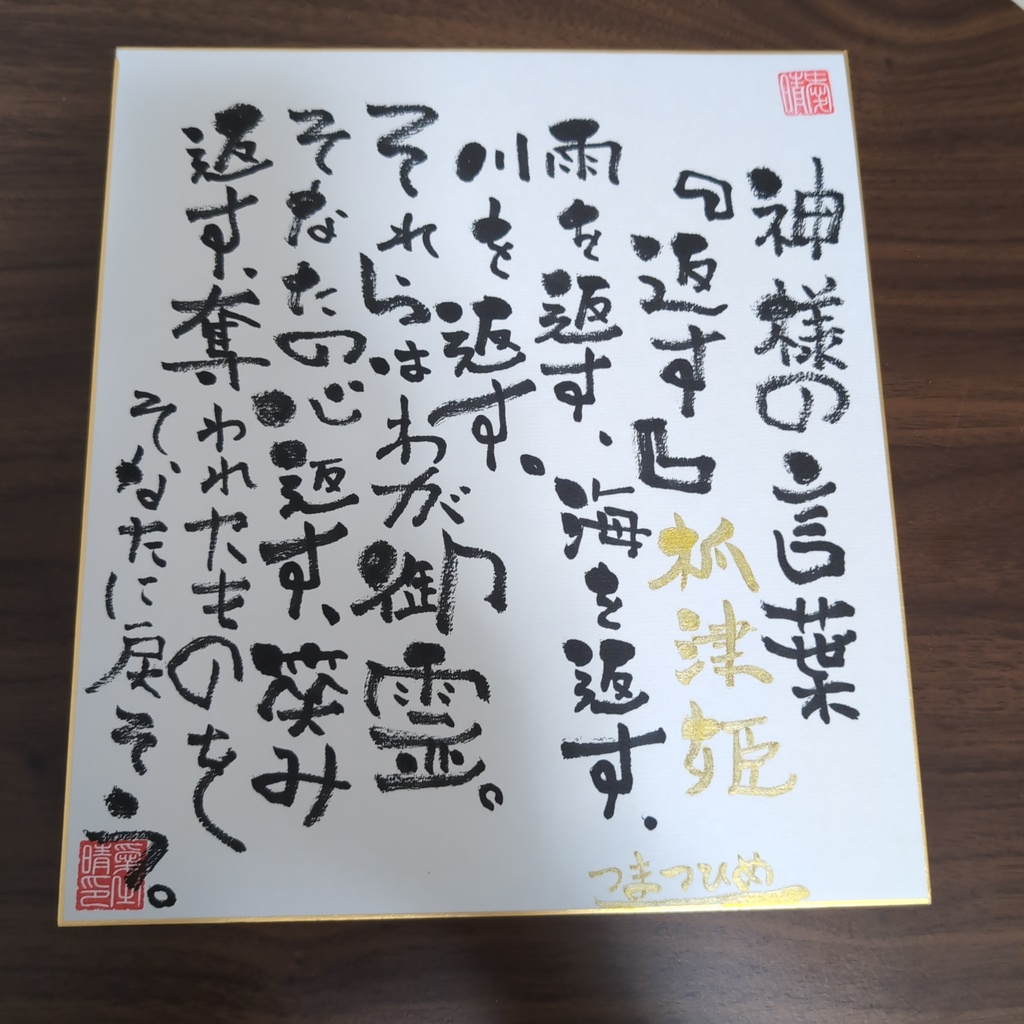 神様の言葉
『返す』枛津姫
つまつひめ
雨を返す、海を返す、
川を返す。
それらはわが御霊。
そなたの心返す、笑み
返す、奪われたものを
そなたに戻そう。